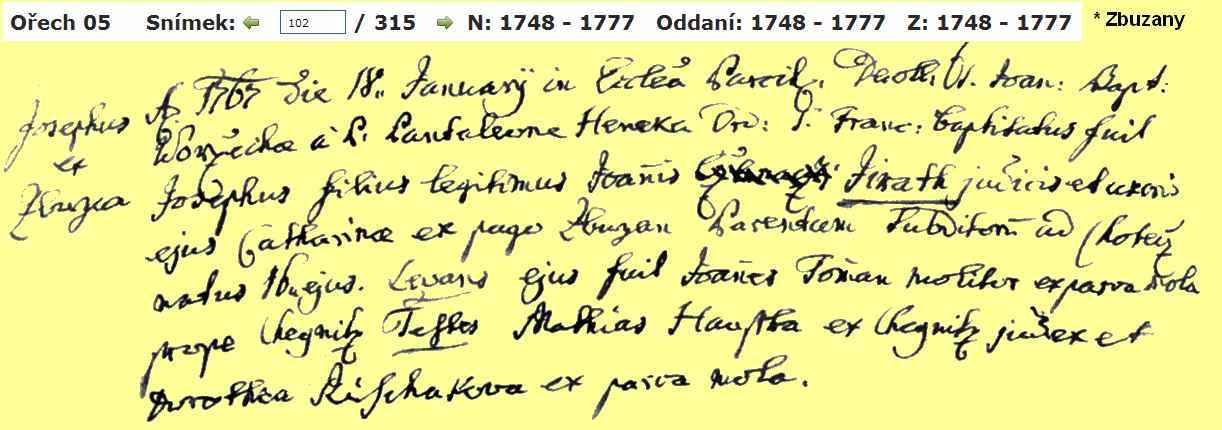 Ořech 05 Snímek: 102 / 315 N: 1748 - 1777 Oddaní: 1748 - 1777 Z: 1748 - 1777 * Zbuzany
Josephus ex Zbuzan
A 1767 Die 18. Januarÿ in Eccłea Paroch. S. Joan: Bapt:
à P. Pantaleone Heneka Ord: S. Franc: baptisatus fuit
Josephus filius legitimus Joañis Jirath judicis et uxoris
ejus Catharinæ ex pago Zbuzan Parentum Subditorum ad Choteč
natus 16. ejus. Levans ejus fuit Joañes Toman molitor ex parva mola
prope Chegnitz Testes Mathias Hauska ex Chegnitz judex et
Dorothea ex parva mola.